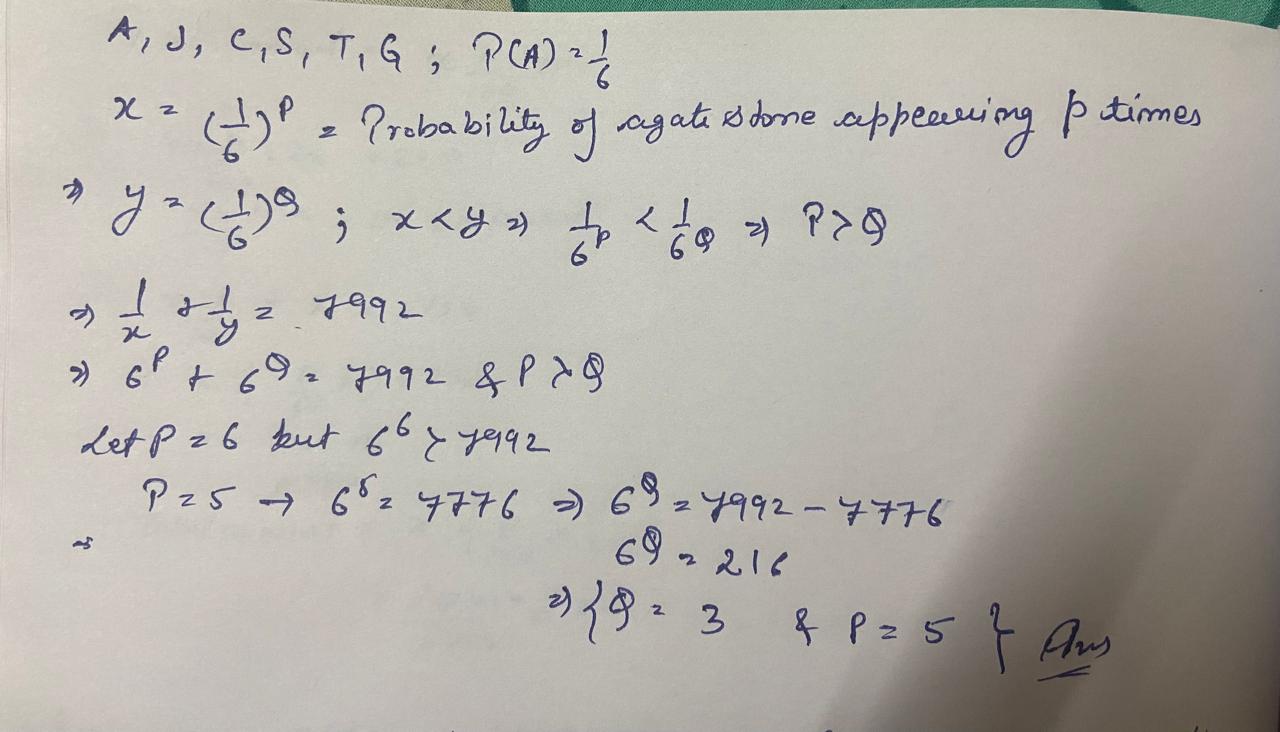 A, J, C, S, T, G ; P(A) = 1/6
x = (1/6)^P = Probability of agate stone appearing p times
⇒ y = (1/6)^Q ; x < y ⇒ 1/6^P < 1/6^Q ⇒ P > Q
⇒ 1/x + 1/y = 7992
⇒ 6^P + 6^Q = 7992 & P > Q
Let P = 6 but 6^6 > 7992
P = 5 → 6^5 = 7776 ⇒ 6^Q = 7992 - 7776
⇒ 6^Q = 216
⇒ { Q = 3 & P = 5 } Ans